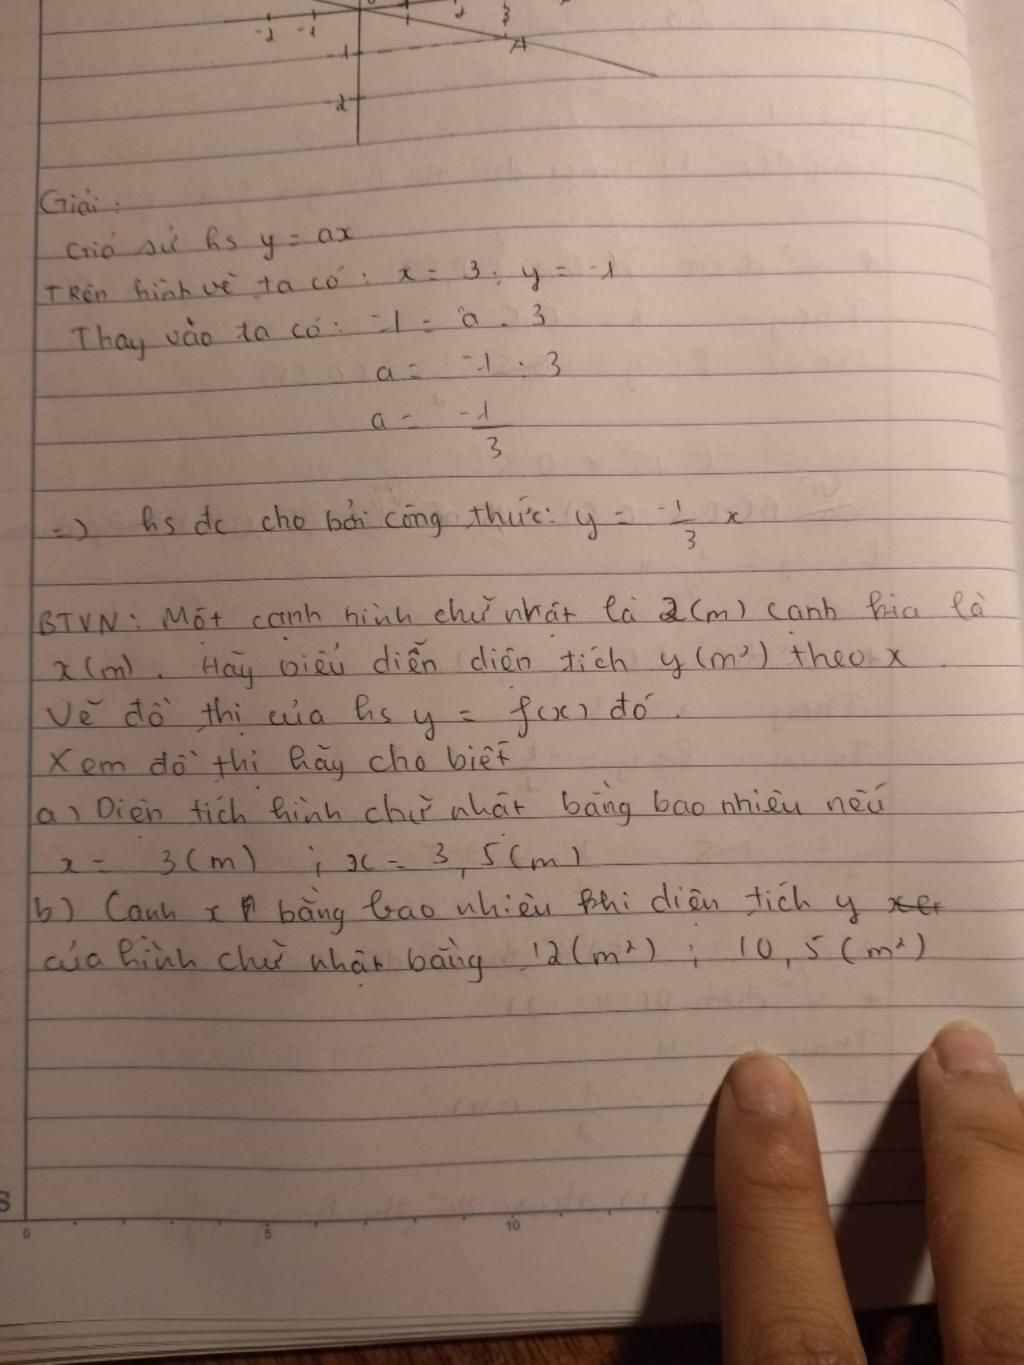 -2 -1 0 2 3
-1 A
-2
Giải:
Giả sử hs y = ax
TRên hình vẽ ta có: x = 3; y = -1
Thay vào ta có: -1 = a . 3
a = -1 : 3
a = -1/3
=> hs đc cho bởi công thức: y = -1/3 x
BTVN: Một cạnh hình chữ nhật là 2(m) cạnh kia là
x(m). Hãy biểu diễn diện tích y(m²) theo x.
Vẽ đồ thị của hs y = f(x) đó.
Xem đồ thị hãy cho biết
a) Diện tích hình chữ nhật bằng bao nhiêu nếu
x = 3(m) ; x = 3,5(m)
b) Cạnh x bằng bao nhiêu khi diện tích y
của hình chữ nhật bằng 12(m²) ; 10,5(m²)
S
0 5 10